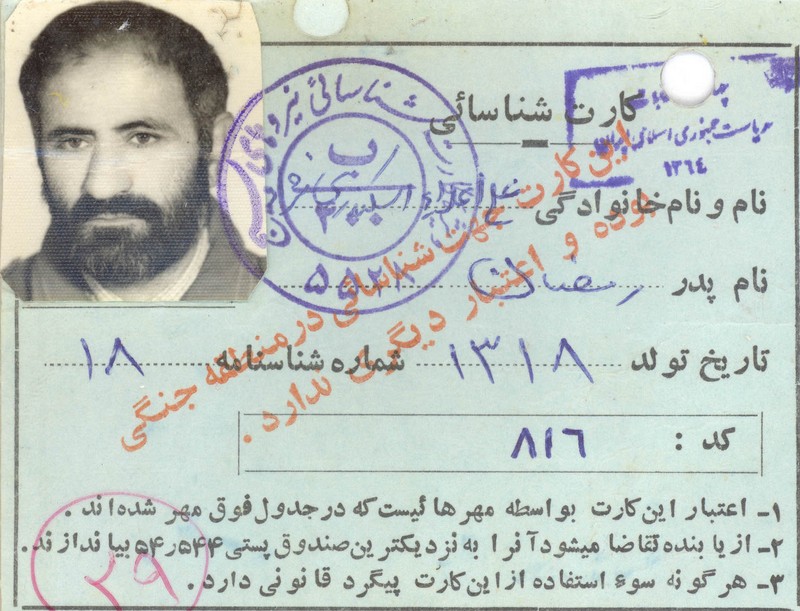 کارت شناسائی
ریاست جمهوری اسلامی ایران
۱۳٦٤
نام و نام خانوادگی
نام پدر رمضان
تاریخ تولد ۱۳۱۸ شماره شناسنامه ۱۸
این کارت جهت شناسائی در منطقه جنگی
بوده و اعتبار دیگری ندارد.
کد : ۸۱٦
۱- اعتبار این کارت بواسطه مهرهائیست که در جدول فوق مهر شده‌اند.
۲- از یابنده تقاضا میشود آنرا به نزدیکترین صندوق پستی ۵۴ر۵۴۴ بیاندازند.
۳- هرگونه سوء استفاده از این کارت پیگرد قانونی دارد.
۲۹